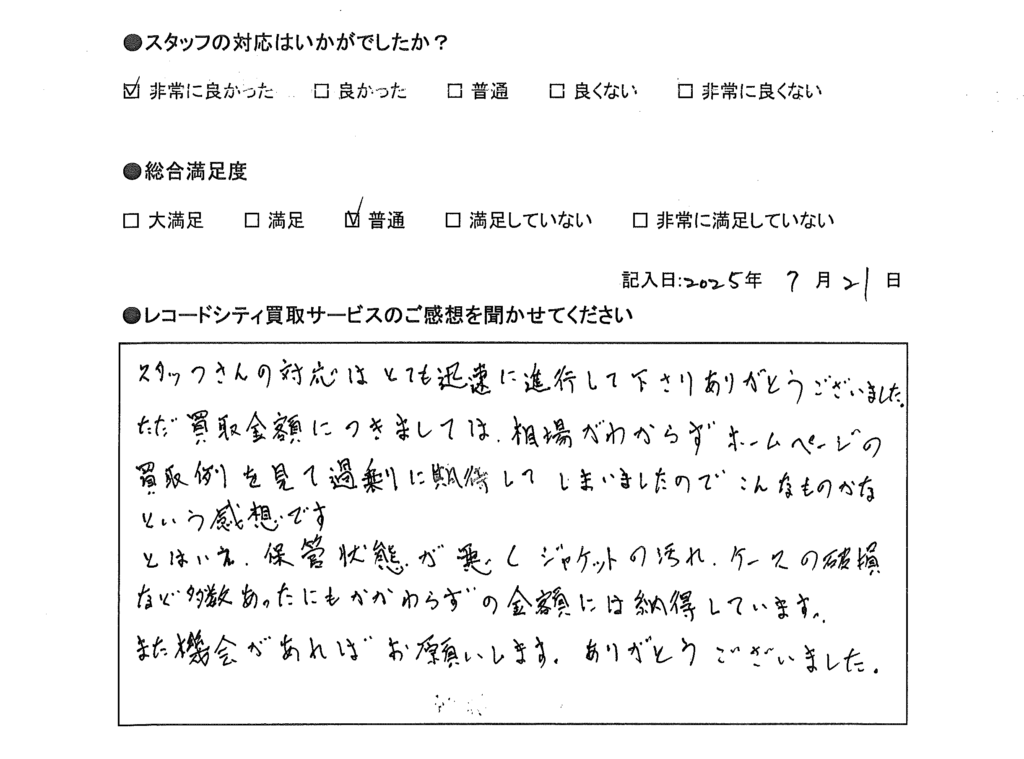 ●スタッフの対応はいかがでしたか？
☑ 非常に良かった □ 良かった □ 普通 □ 良くない □ 非常に良くない
●総合満足度
□ 大満足 □ 満足 ☑ 普通 □ 満足していない □ 非常に満足していない
記入日:2025年 7月21日
●レコードシティ買取サービスのご感想を聞かせてください
スタッフさんの対応はとても迅速に進行して下さりありがとうございました。
ただ買取金額につきましては、相場がわからずホームページの
買取例を見て過剰に期待してしまいましたのでこんなものかな
という感想です
とはいえ、保管状態が悪くジャケットの汚れ、ケースの破損
など多数あったにもかかわらずの金額には納得しています。
また機会があればお願いします。ありがとうございました。